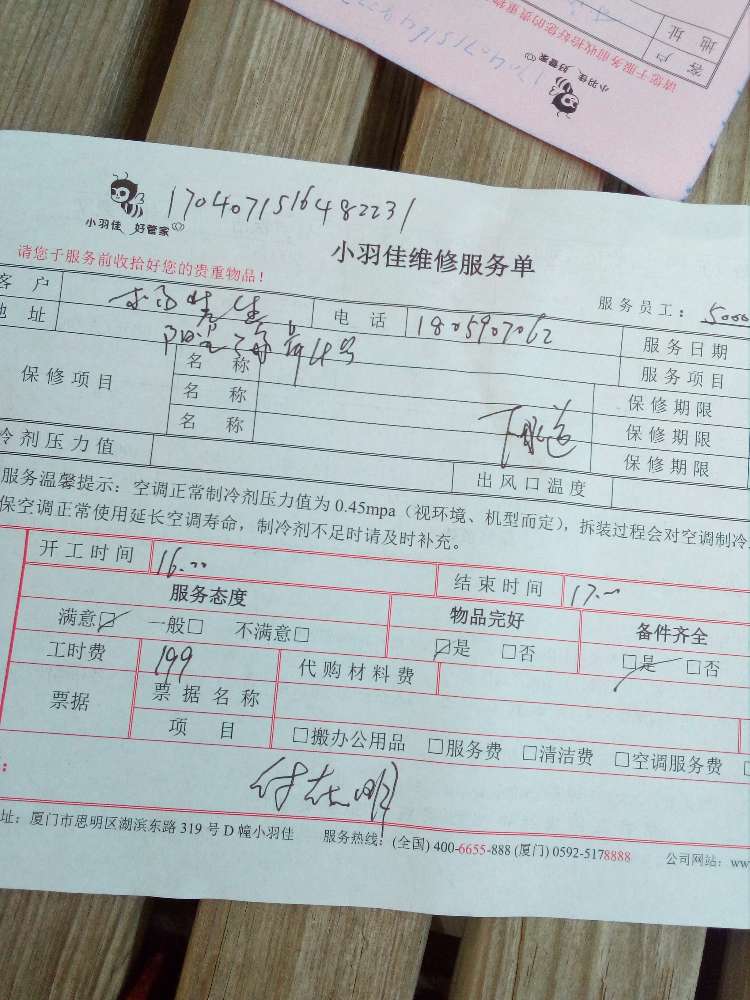 客户
地址
请您于服务前收拾好您的贵重物
小羽佳 好管家
17040715164822231
小羽佳 好管家
小羽佳维修服务单
请您于服务前收拾好您的贵重物品！
服务员工：5000
客户
电话 1805907062
服务日期
地址
服务项目
保修项目 名称 保修期限
名称 保修期限
名称 下水道 保修期限
冷剂压力值 出风口温度
服务温馨提示：空调正常制冷剂压力值为 0.45mpa（视环境、机型而定），拆装过程会对空调制冷
保空调正常使用延长空调寿命，制冷剂不足时请及时补充。
开工时间 16:00 结束时间 17:00
服务态度 物品完好 备件齐全
满意☑ 一般□ 不满意□ ☑是 □否 ☑是 □否
工时费 199 代购材料费
票据 票据名称
项目 □搬办公用品 □服务费 □清洁费 □空调服务费
址：厦门市思明区湖滨东路 319 号 D 幢小羽佳 服务热线：(全国) 400-6655-888 (厦门) 0592-5178888 公司网站：ww